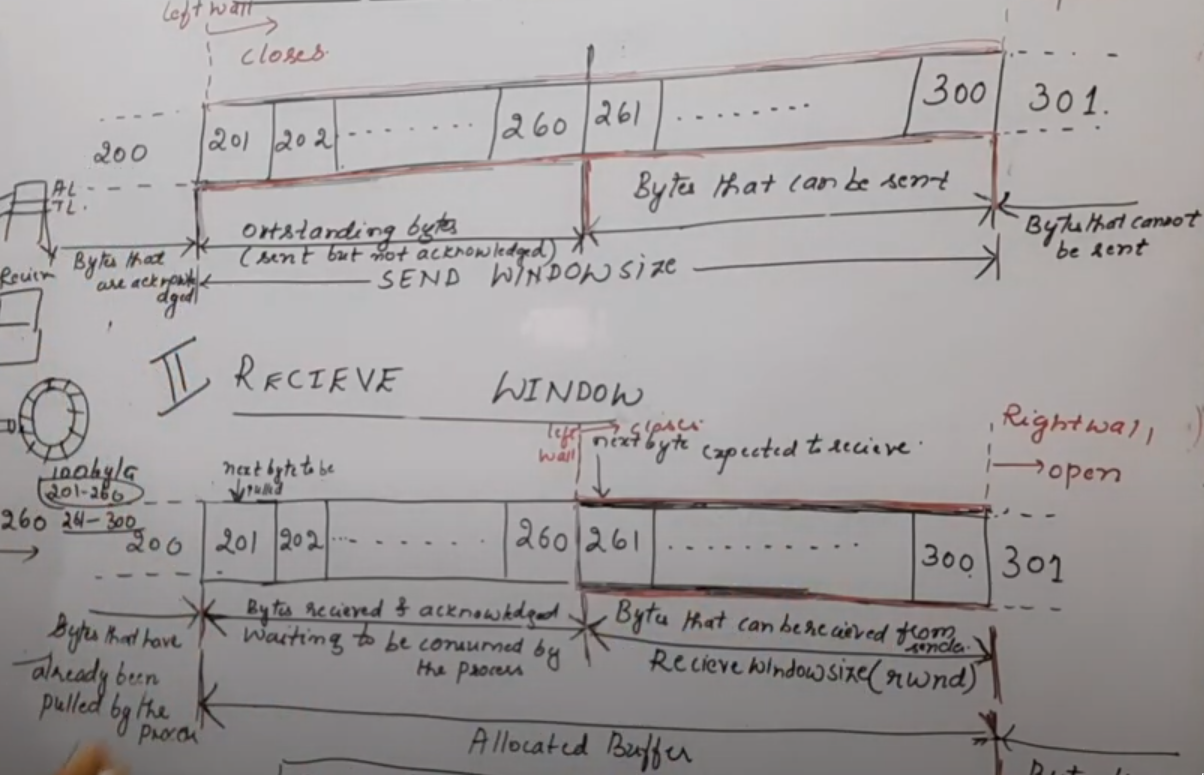 left wall
closes
200 201 202 260 261 300 301.
AL
TL.
Bytes that can be sent
Outstanding bytes
(sent but not acknowledged)
Bytes that
are acknowledged
Bytes that cannot
be sent
SEND WINDOW size
II RECIEVE WINDOW
left wall
closes
next byte expected to recieve.
Right wall,
open
next byte to be
pulled
100 by/a
201-260
260 261-300
200 201 202 260 261 300 301
Bytes that have
already been
pulled by the
Bytes recieved & acknowledged
waiting to be consumed by
the process
Bytes that can be recieved from
sender
Recieve window size (rwnd)
Allocated Buffer